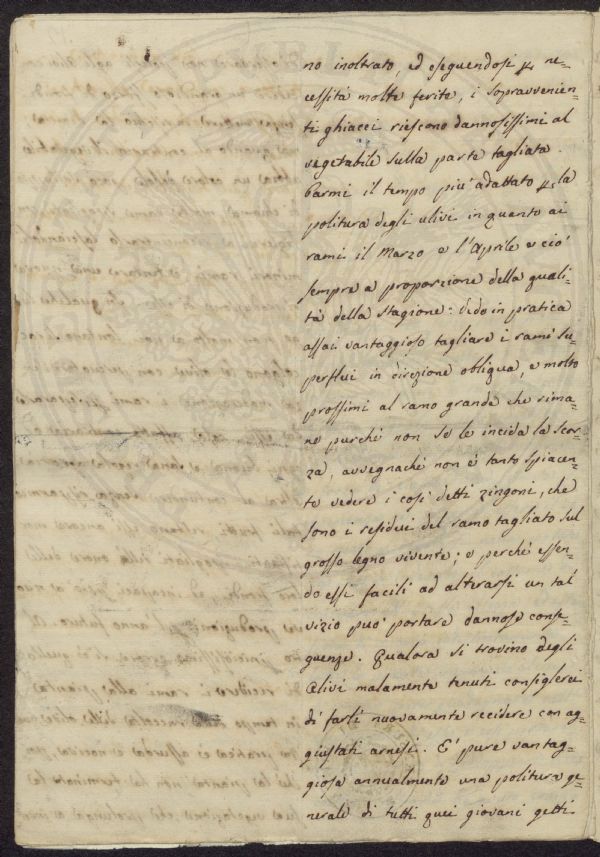 no inoltrato, ed eseguendosi p ne=
cessità molte ferite, i sopravvenien=
ti ghiacci riescono dannosissimi al
vegetabile sulla parte tagliata.
Parmi il tempo più adattato p la
politura degli ulivi in quanto ai
rami il Marzo e l'Aprile e ciò
sempre a proporzione della quali=
tà della stagione: Vedo in pratica
assai vantaggioso tagliare i rami su=
perflui in direzione obliqua, e molto
prossimi al ramo grande che rima=
ne purchè non se le incida la scor=
za, avvegnachè non è tanto spiacen=
te vedere i così detti zingoni, che
sono i residui del ramo tagliato sul
grosso legno vivente; e perchè essen=
do essi facili ad alterarsi un tal
vizio può portare dannose conse=
guenze. Qualora si trovino degli
Olivi malamente tenuti consiglerei
di farli nuovamente recidere con ag=
giustati arnesi. E' pure vantag=
giosa annualmente una politura ge=
nerale di tutti quei giovani getti